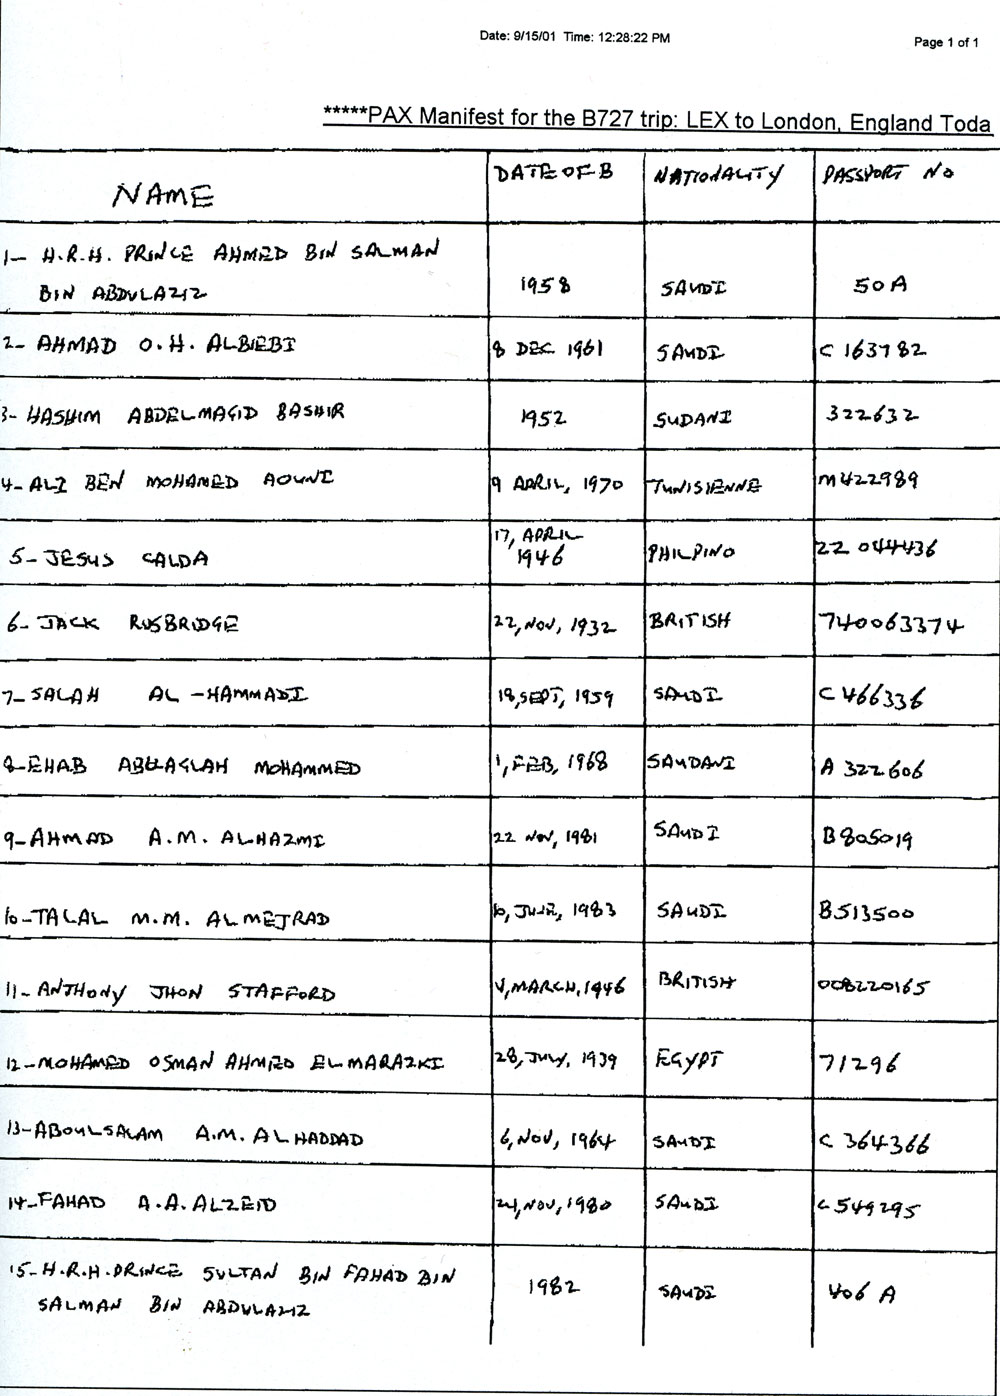 Date: 9/15/01 Time: 12:28:22 PM
Page 1 of 1
*****PAX Manifest for the B727 trip: LEX to London, England Toda
NAME DATE OF B NATIONALITY PASSPORT NO
1- H.R.H. PRINCE AHMED BIN SALMAN
BIN ABDULAZIZ 1958 SAUDI 50 A
2- AHMAD O.H. ALBIEBI 8 DEC 1961 SAUDI C 163782
3- HASHIM ABDELMAGID BASHIR 1952 SUDANI 322632
4- ALI BEN MOHAMED AOUNI 9 APRIL, 1970 TUNISIENNE M422989
17, APRIL
5- JESUS CALDA 1946 PHILPINO 22 044436
6- JACK RUSBRIDGE 22, NOV, 1932 BRITISH 740063374
7- SALAH AL-HAMMADI 18, SEPT, 1959 SAUDI C 466336
8- EHAB MOHAMMED 1, FEB, 1968 SAUDANI A 322606
9- AHMAD A.M. ALHAZMI 22 NOV, 1981 SAUDI B805019
10- TALAL M.M. ALMEJRAD JUNE, 1983 SAUDI B513500
11- ANTHONY JHON STAFFORD MARCH, 1946 BRITISH 008220165
12- MOHAMED OSMAN AHMED ELMARAZKI 28, JULY, 1939 EGYPT 71296
13- ABOULSALAM A.M. ALHADDAD 6, NOV, 1964 SAUDI C 364366
14- FAHAD A.A. ALZEID 24, NOV, 1980 SAUDI C 549295
15- H.R.H. PRINCE SULTAN BIN FAHAD BIN
SALMAN BIN ABDULAZIZ 1982 SAUDI 406 A